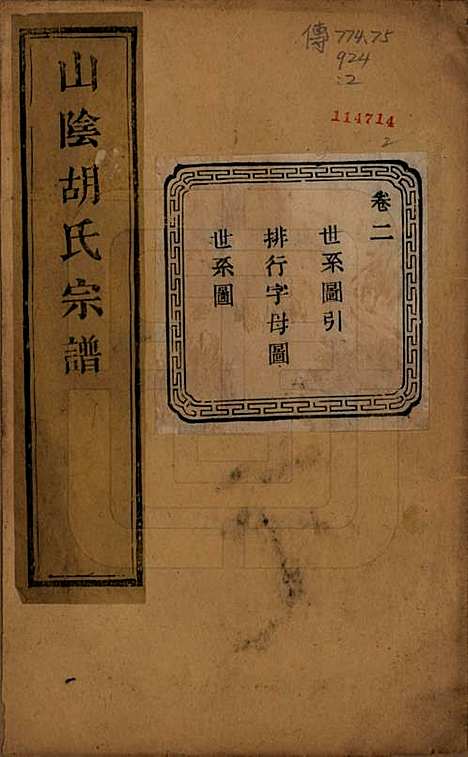 山陰胡氏宗譜
傳 774.75
924
:2
114714
2
卷二
世系圖引
排行字母圖
世系圖